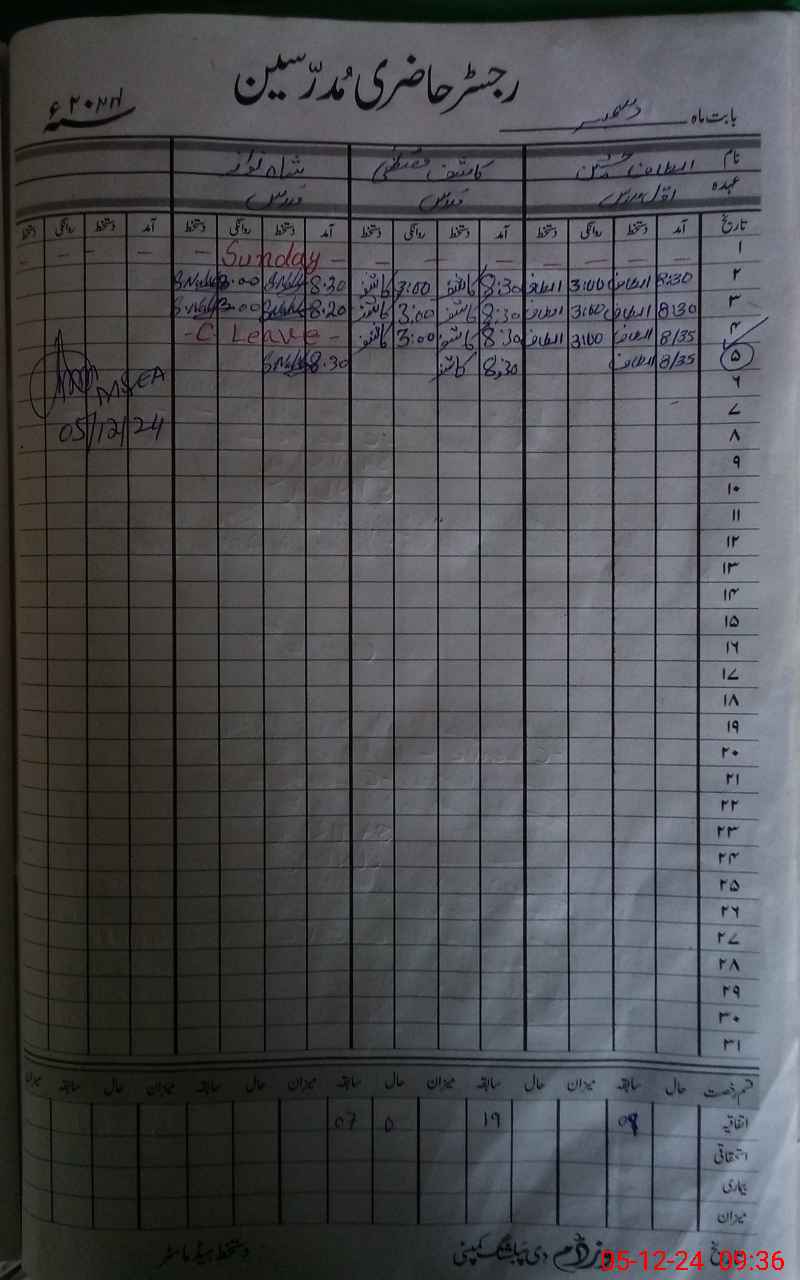 رجسٹر حاضری مُدرّسین
بابت ماہ دسمبر ۲۰۲۴ء
نام الطاف حسین کاشف مصطفیٰ شاہ نواز
عہدہ اول مدرس مدرس مدرس
تاریخ آمد دستخط روانگی دستخط آمد دستخط روانگی دستخط آمد دستخط روانگی دستخط آمد دستخط روانگی دستخط
۱ — — — — — — — — Sunday — — — — —
۲ 8:30 الطاف 3:00 الطاف 8:30 کاشف 3:00 کاشف 8:30 3:00
۳ 8:30 الطاف 3:00 الطاف 8:30 کاشف 3:00 کاشف 8:20 3:00
۴ 8/35 الطاف 3:00 الطاف 8:30 کاشف 3:00 کاشف - C. Leave -
۵ 8/35 الطاف 8:30 کاشف 8:30
۶ MSEA
۷
۸ 05/12/24
۹
۱۰
۱۱
۱۲
۱۳
۱۴
۱۵
۱۶
۱۷
۱۸
۱۹
۲۰
۲۱
۲۲
۲۳
۲۴
۲۵
۲۶
۲۷
۲۸
۲۹
۳۰
۳۱
قسم رخصت حال سابقہ میزان حال سابقہ میزان حال سابقہ میزان حال سابقہ میزان حال سابقہ میزان
اتفاقیہ 19 0 07
استحقاقی
بیماری
میزان
دی پبلشنگ کمپنی دستخط ہیڈ ماسٹر
05-12-24 09:36